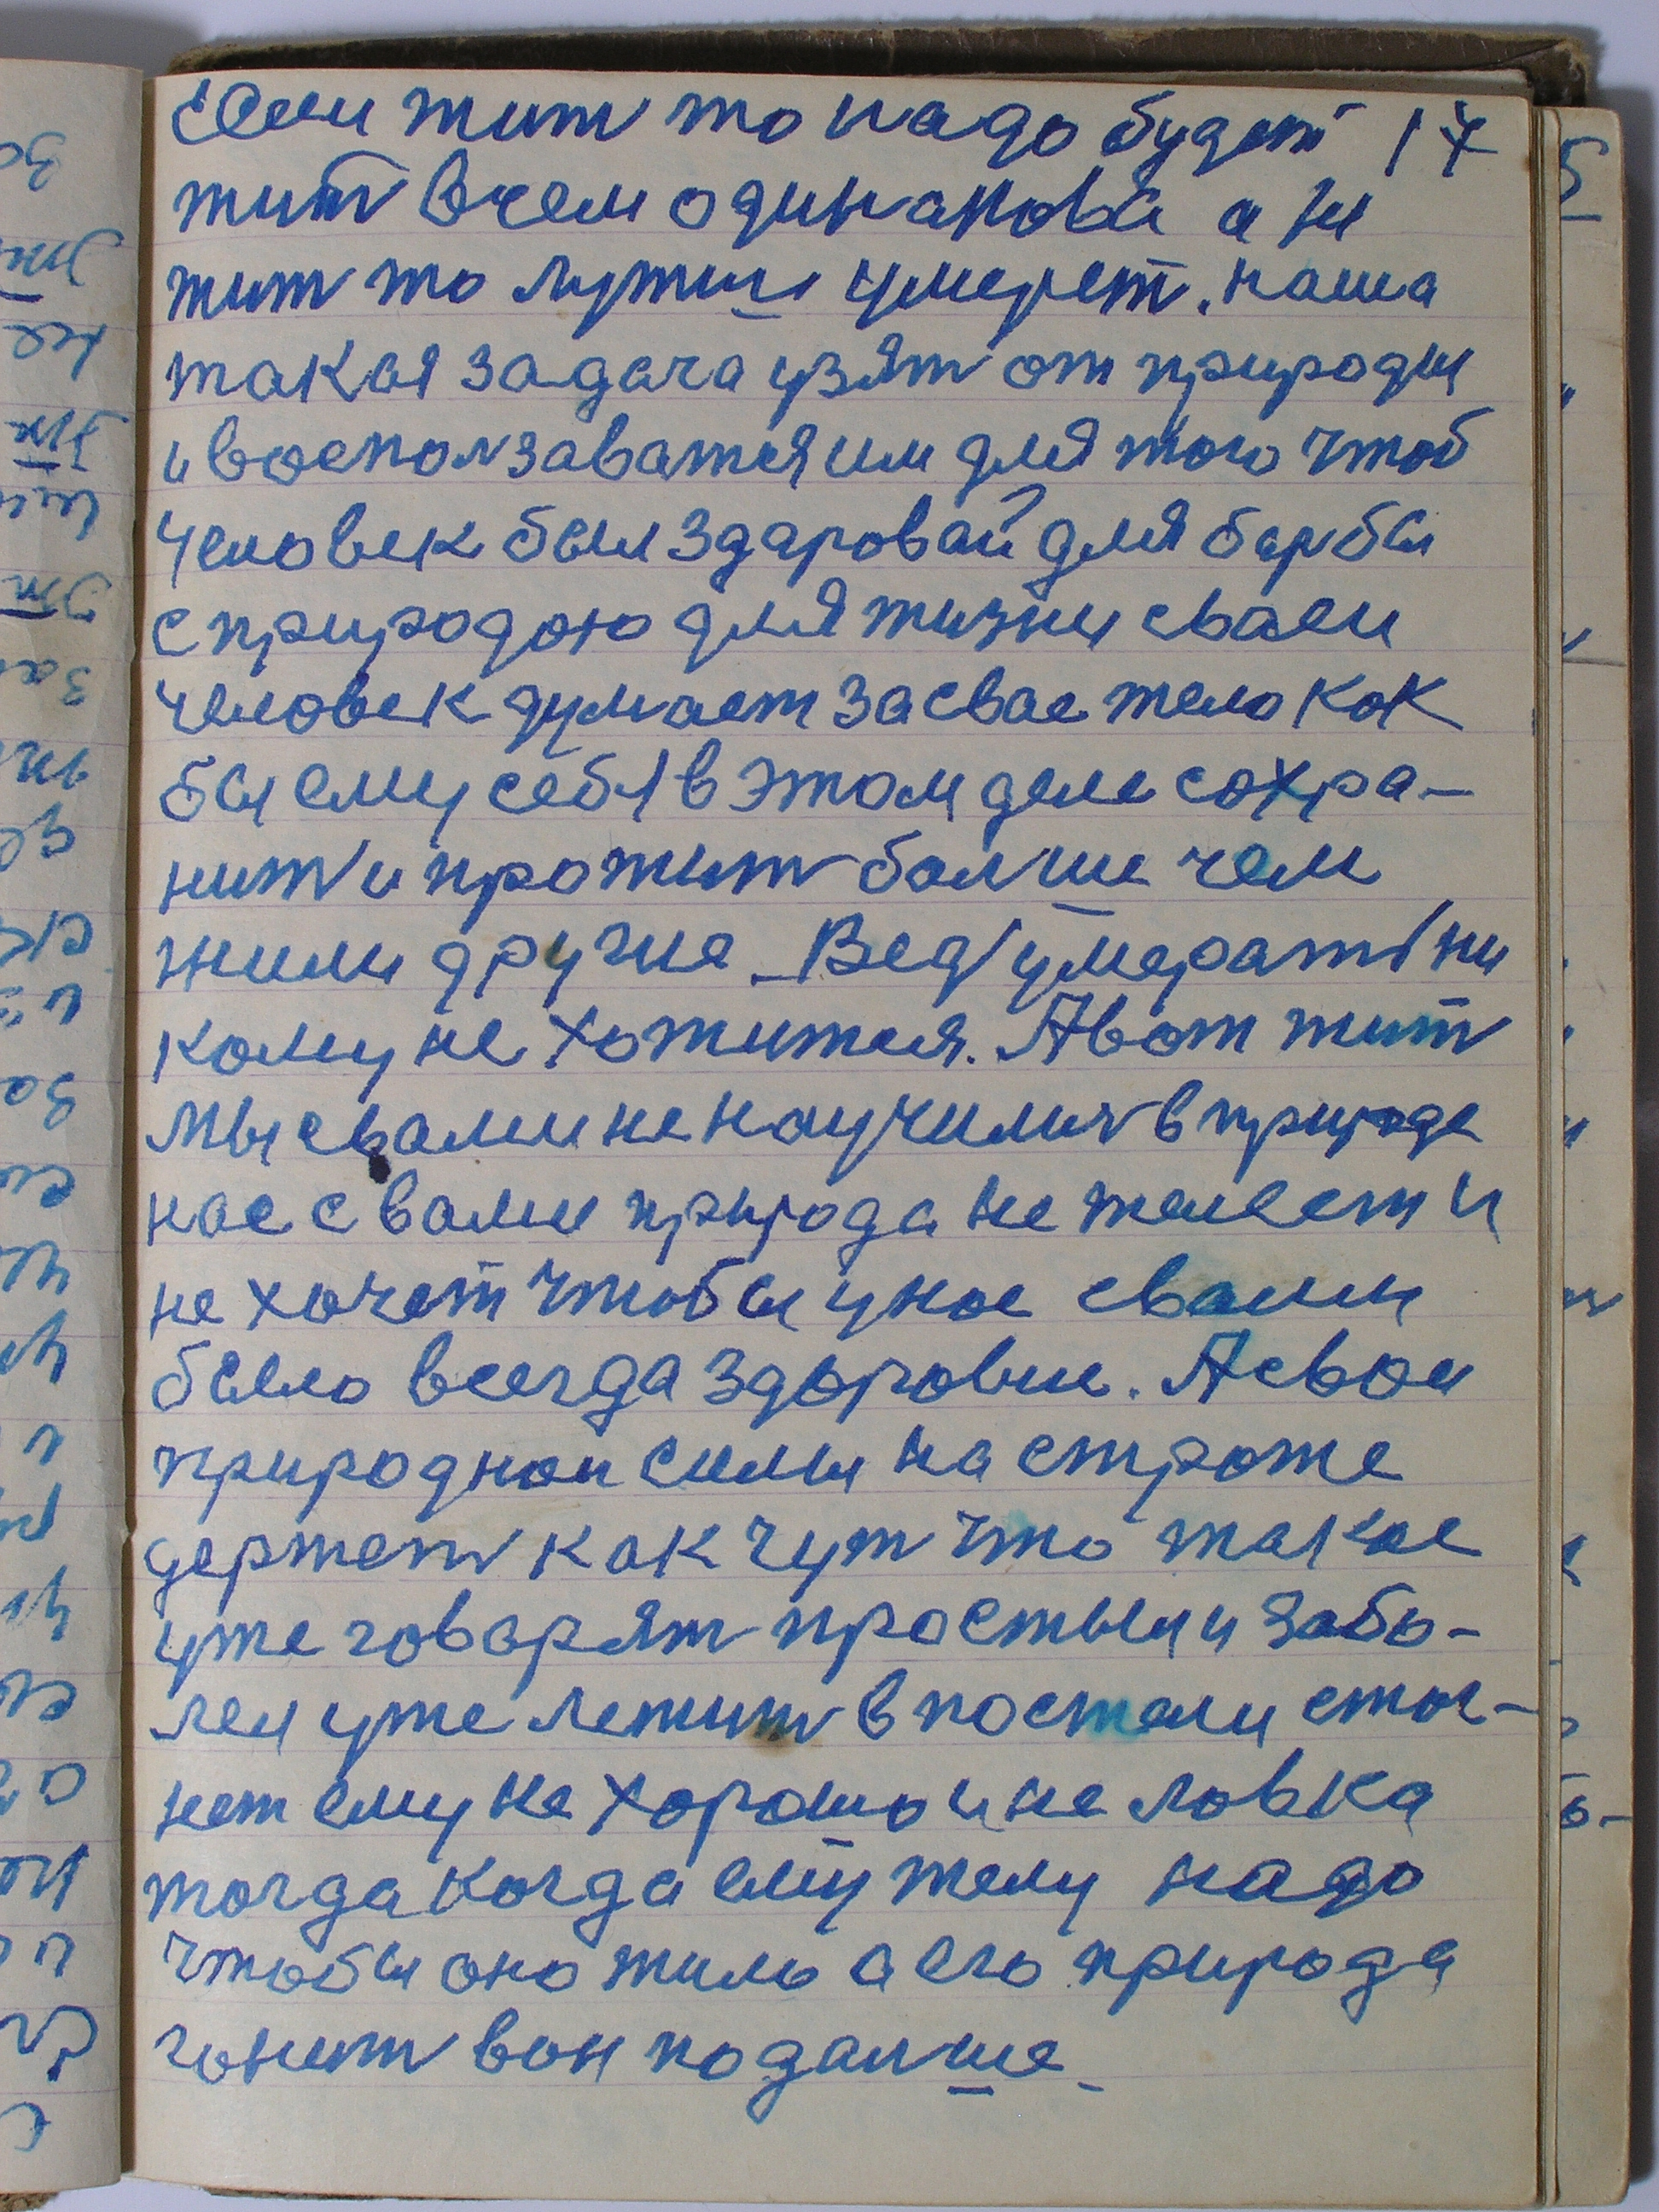 Если жить то надо будет 17
жить всем одинаковы а ни
жить то лутши умерет. наша
такая задача узять от природы
и восползаватся им для того чтоб
человек был здаровай для барбы
с природою для жизни сваеи
человек думает за свае тело как
бы ему себя в этом деле сохра-
нить и прожить болше чем
жили другие Ведь умерать ни
кому не хотится. А вот жить
мы с вами не научились в природе
нас с вами природа не жалеет и
не хочет чтобы у нас с вами
было всегда здоровие. А свои
природнои силы на строже
держеть как чуть что такое
уже говорят простыл и забо-
лел уже лежить в постели стог-
нет ему не хорошо и не ловка
тогда когда ему телу надо
чтобы оно жило а его природа
гонить вон подалше